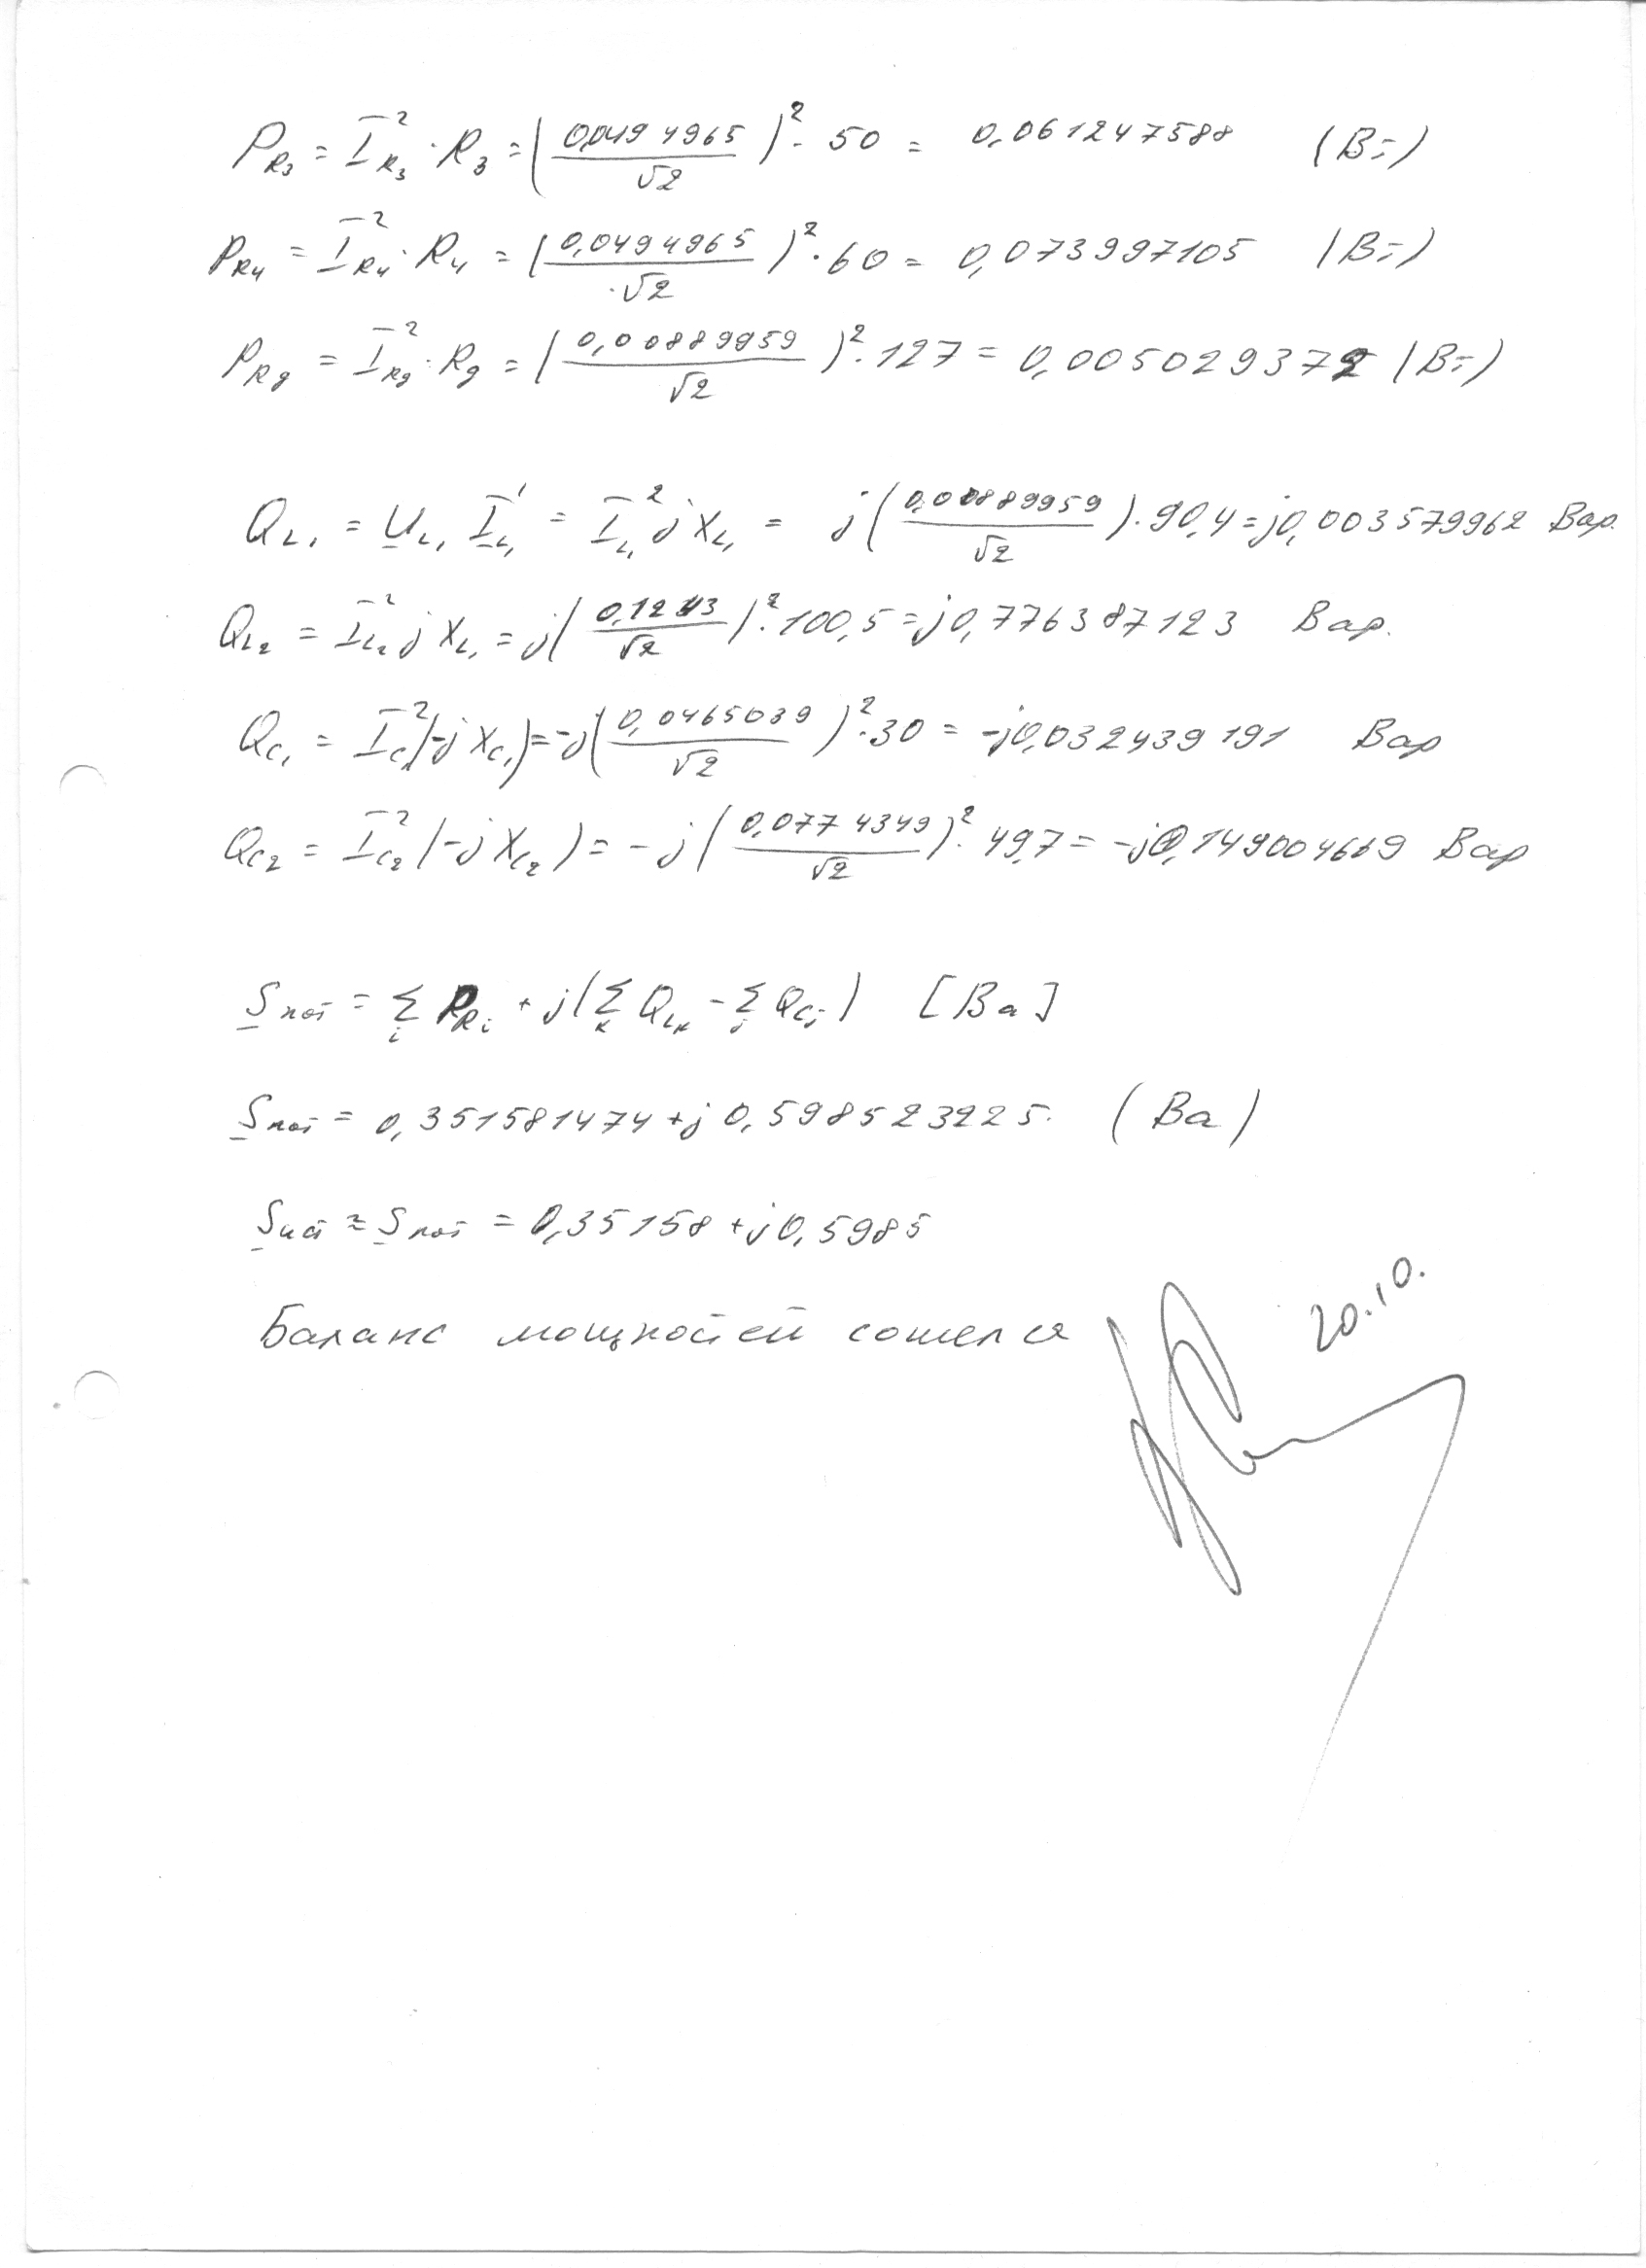 P_R3 = I²_R3 · R3 = (0,0494965/√2)² · 50 = 0,061247588 (Вт)
P_R4 = I²_R4 · R4 = (0,0494965/√2)² · 60 = 0,073997105 (Вт)
P_Rд = I²_Rд · Rд = (0,00889959/√2)² · 127 = 0,005029372 (Вт)
Q_L1 = U_L1 I'_L1 = I²_L1 jX_L1 = j(0,00889959/√2) · 90,4 = j0,003579962 Вар.
Q_L2 = I²_L2 jX_L1 = j( /√2)² · 100,5 = j0,776387123 Вар.
Q_C1 = I²_C1(-jX_C1) = -j(0,0465039/√2)² · 30 = -j0,032439191 Вар
Q_C2 = I²_C2(-jX_C2) = -j(0,0774349/√2)² · 49,7 = Вар
S пот = Σ_i P_Ri + j(Σ_k Q_Lk - Σ_j Q_Cj) [Ва]
S пот = 0,351581474 + j0,598523225. (Ва)
S ист ≈ S пот = 0,35158 + j0,5985
Баланс мощностей сошелся
20.10.